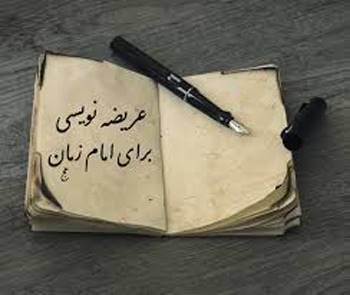 عریضه نویسی
برای امام زمان
عج